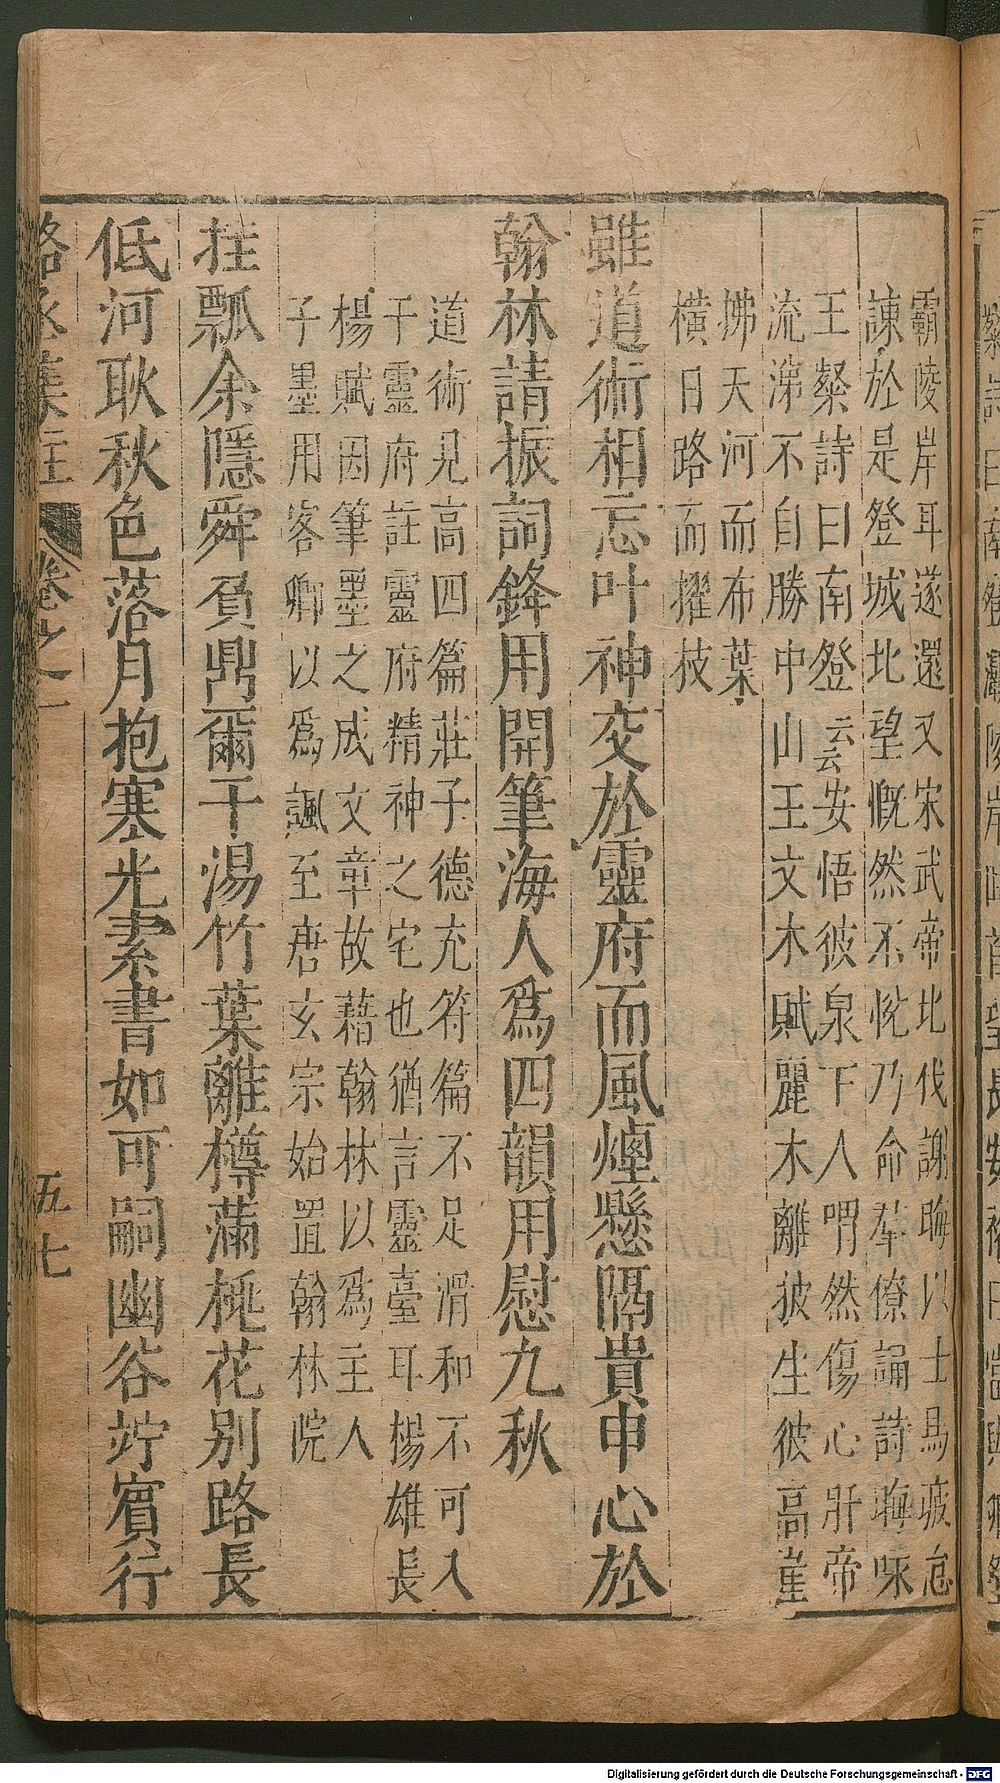 霸陵岸耳遂還又宋武帝北伐謝晦以士馬疲怠
諫於是登城北望慨然不悅乃命羣僚誦詩晦咏
王粲詩曰南登云云安悟彼泉下人喟然傷心肝帝
流涕不自勝中山王文木賦麗木離彼生彼高崖
拂天河而布葉
橫日路而擢枝
雖道術相忘叶神交於靈府而風煙懸隔貴申心於
翰林請振詞鋒用開筆海人爲四韻用慰九秋
道術見高四篇莊子德充符篇不足滑和不可入
于靈府註靈府精神之宅也猶言靈臺耳楊雄長
楊賦因筆墨之成文章故藉翰林以爲主人
子墨用客卿以爲諷至唐玄宗始置翰林院
挂瓢余隱舜負鼎爾干湯竹葉離樽滿桃花别路長
低河耿秋色落月抱寒光素書如可嗣幽谷竚賓行
駱丞集註 卷之一 五七
Digitalisierung gefördert durch die Deutsche Forschungsgemeinschaft - DFG